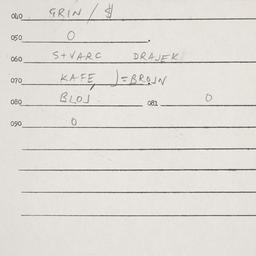 040 GRIN / $
050 0
060 S+VARC DRAJEK
070 KAFE, J=BROJN
080 BLOJ 081 0
090 0